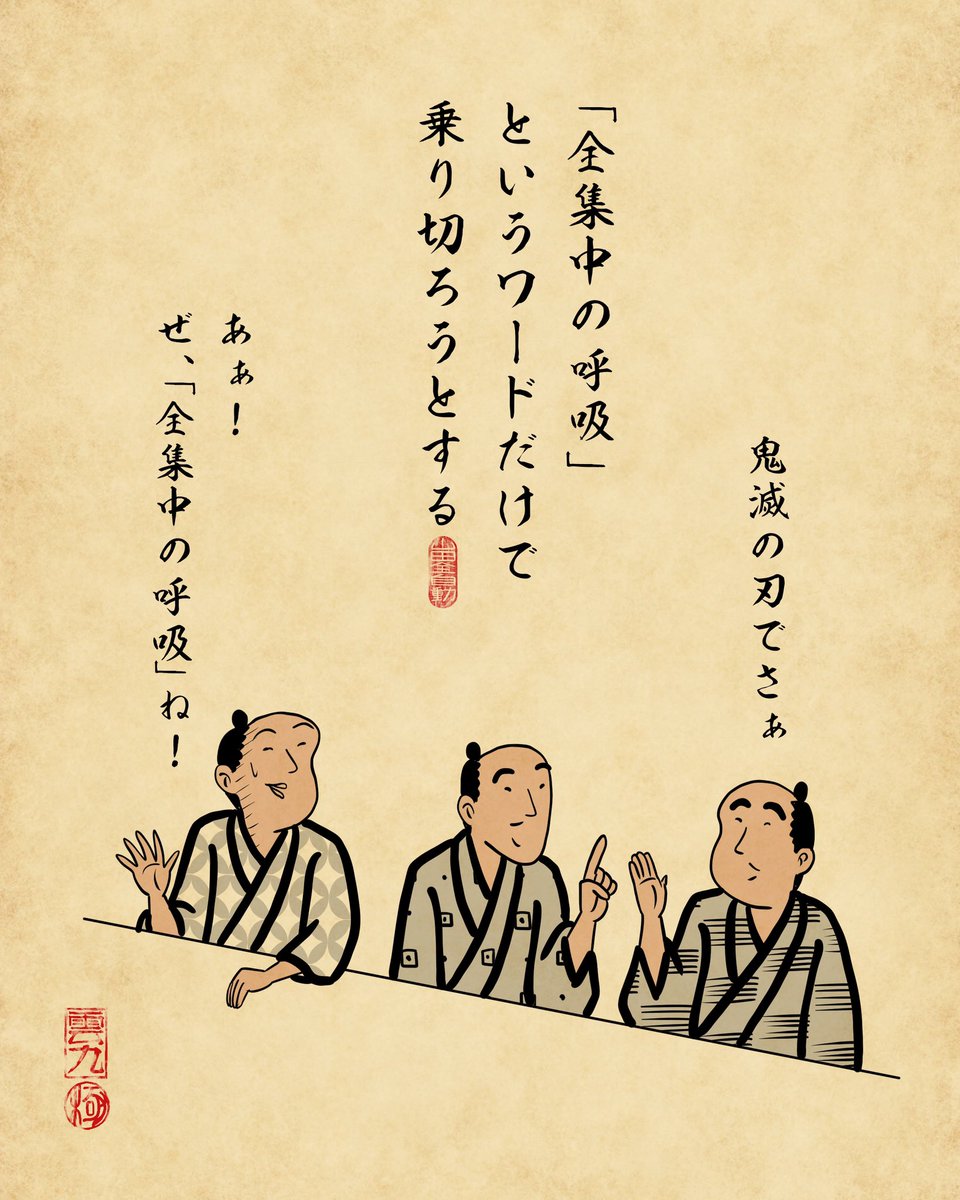 「全集中の呼吸」
というワードだけで
乗り切ろうとする
鬼滅の刃でさぁ
あぁ!
ぜ、「全集中の呼吸」ね!